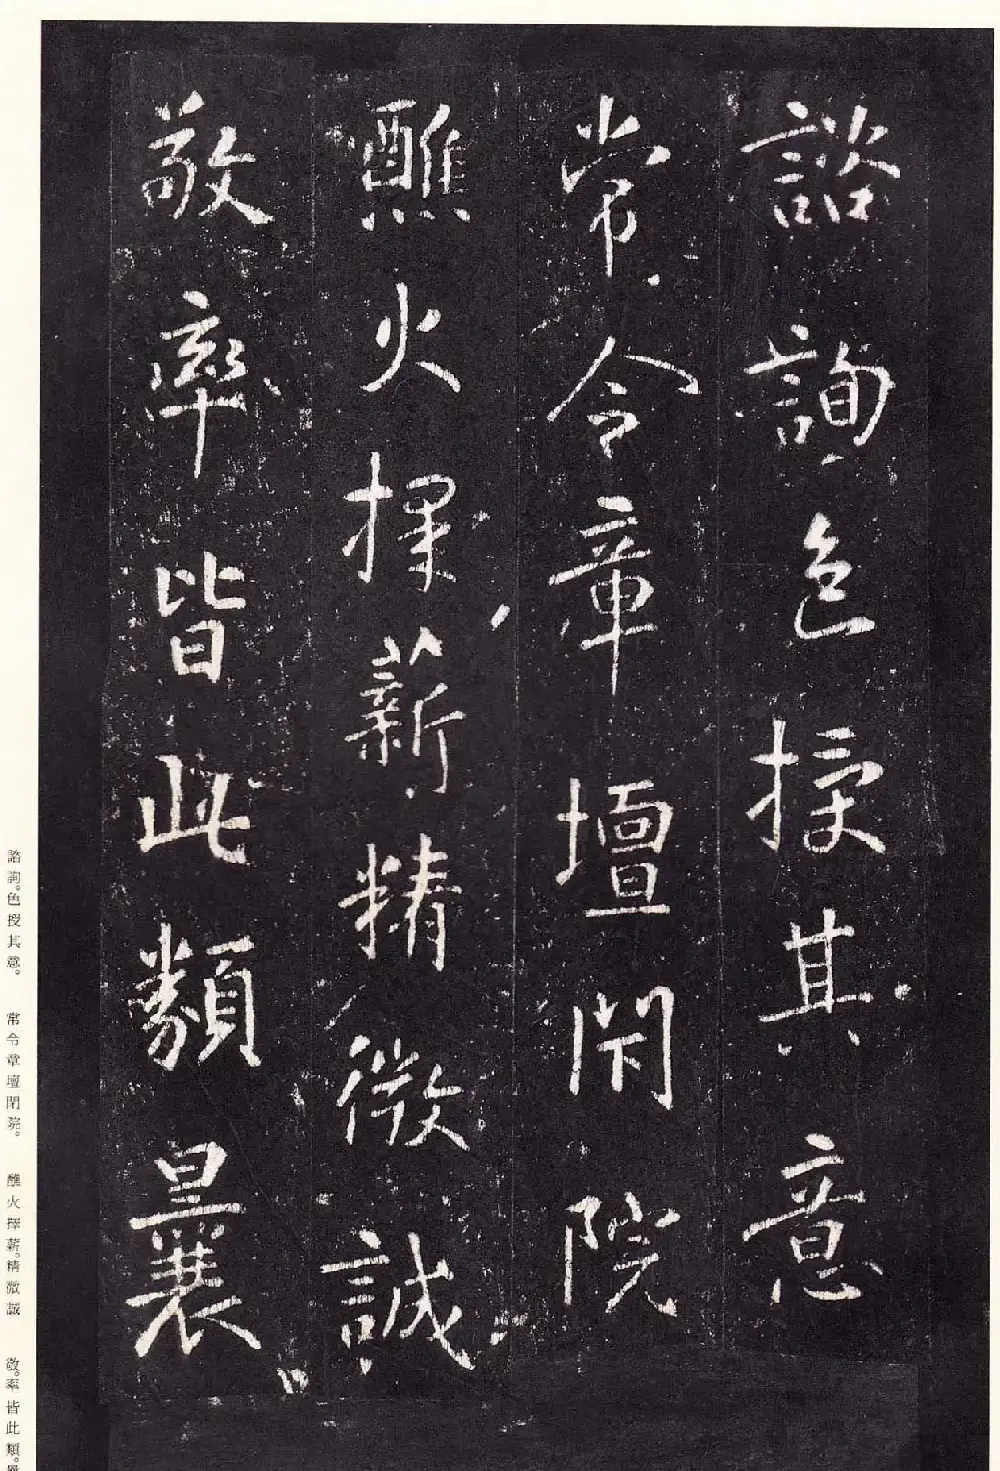 諮詢色授其意
常令章壇閇院
醮火擇薪精微誠
敬率皆此類曩
諮詢。色授其意。 常令章壇閉院。 醮火擇薪。精微誠 敬。率皆此類。曩